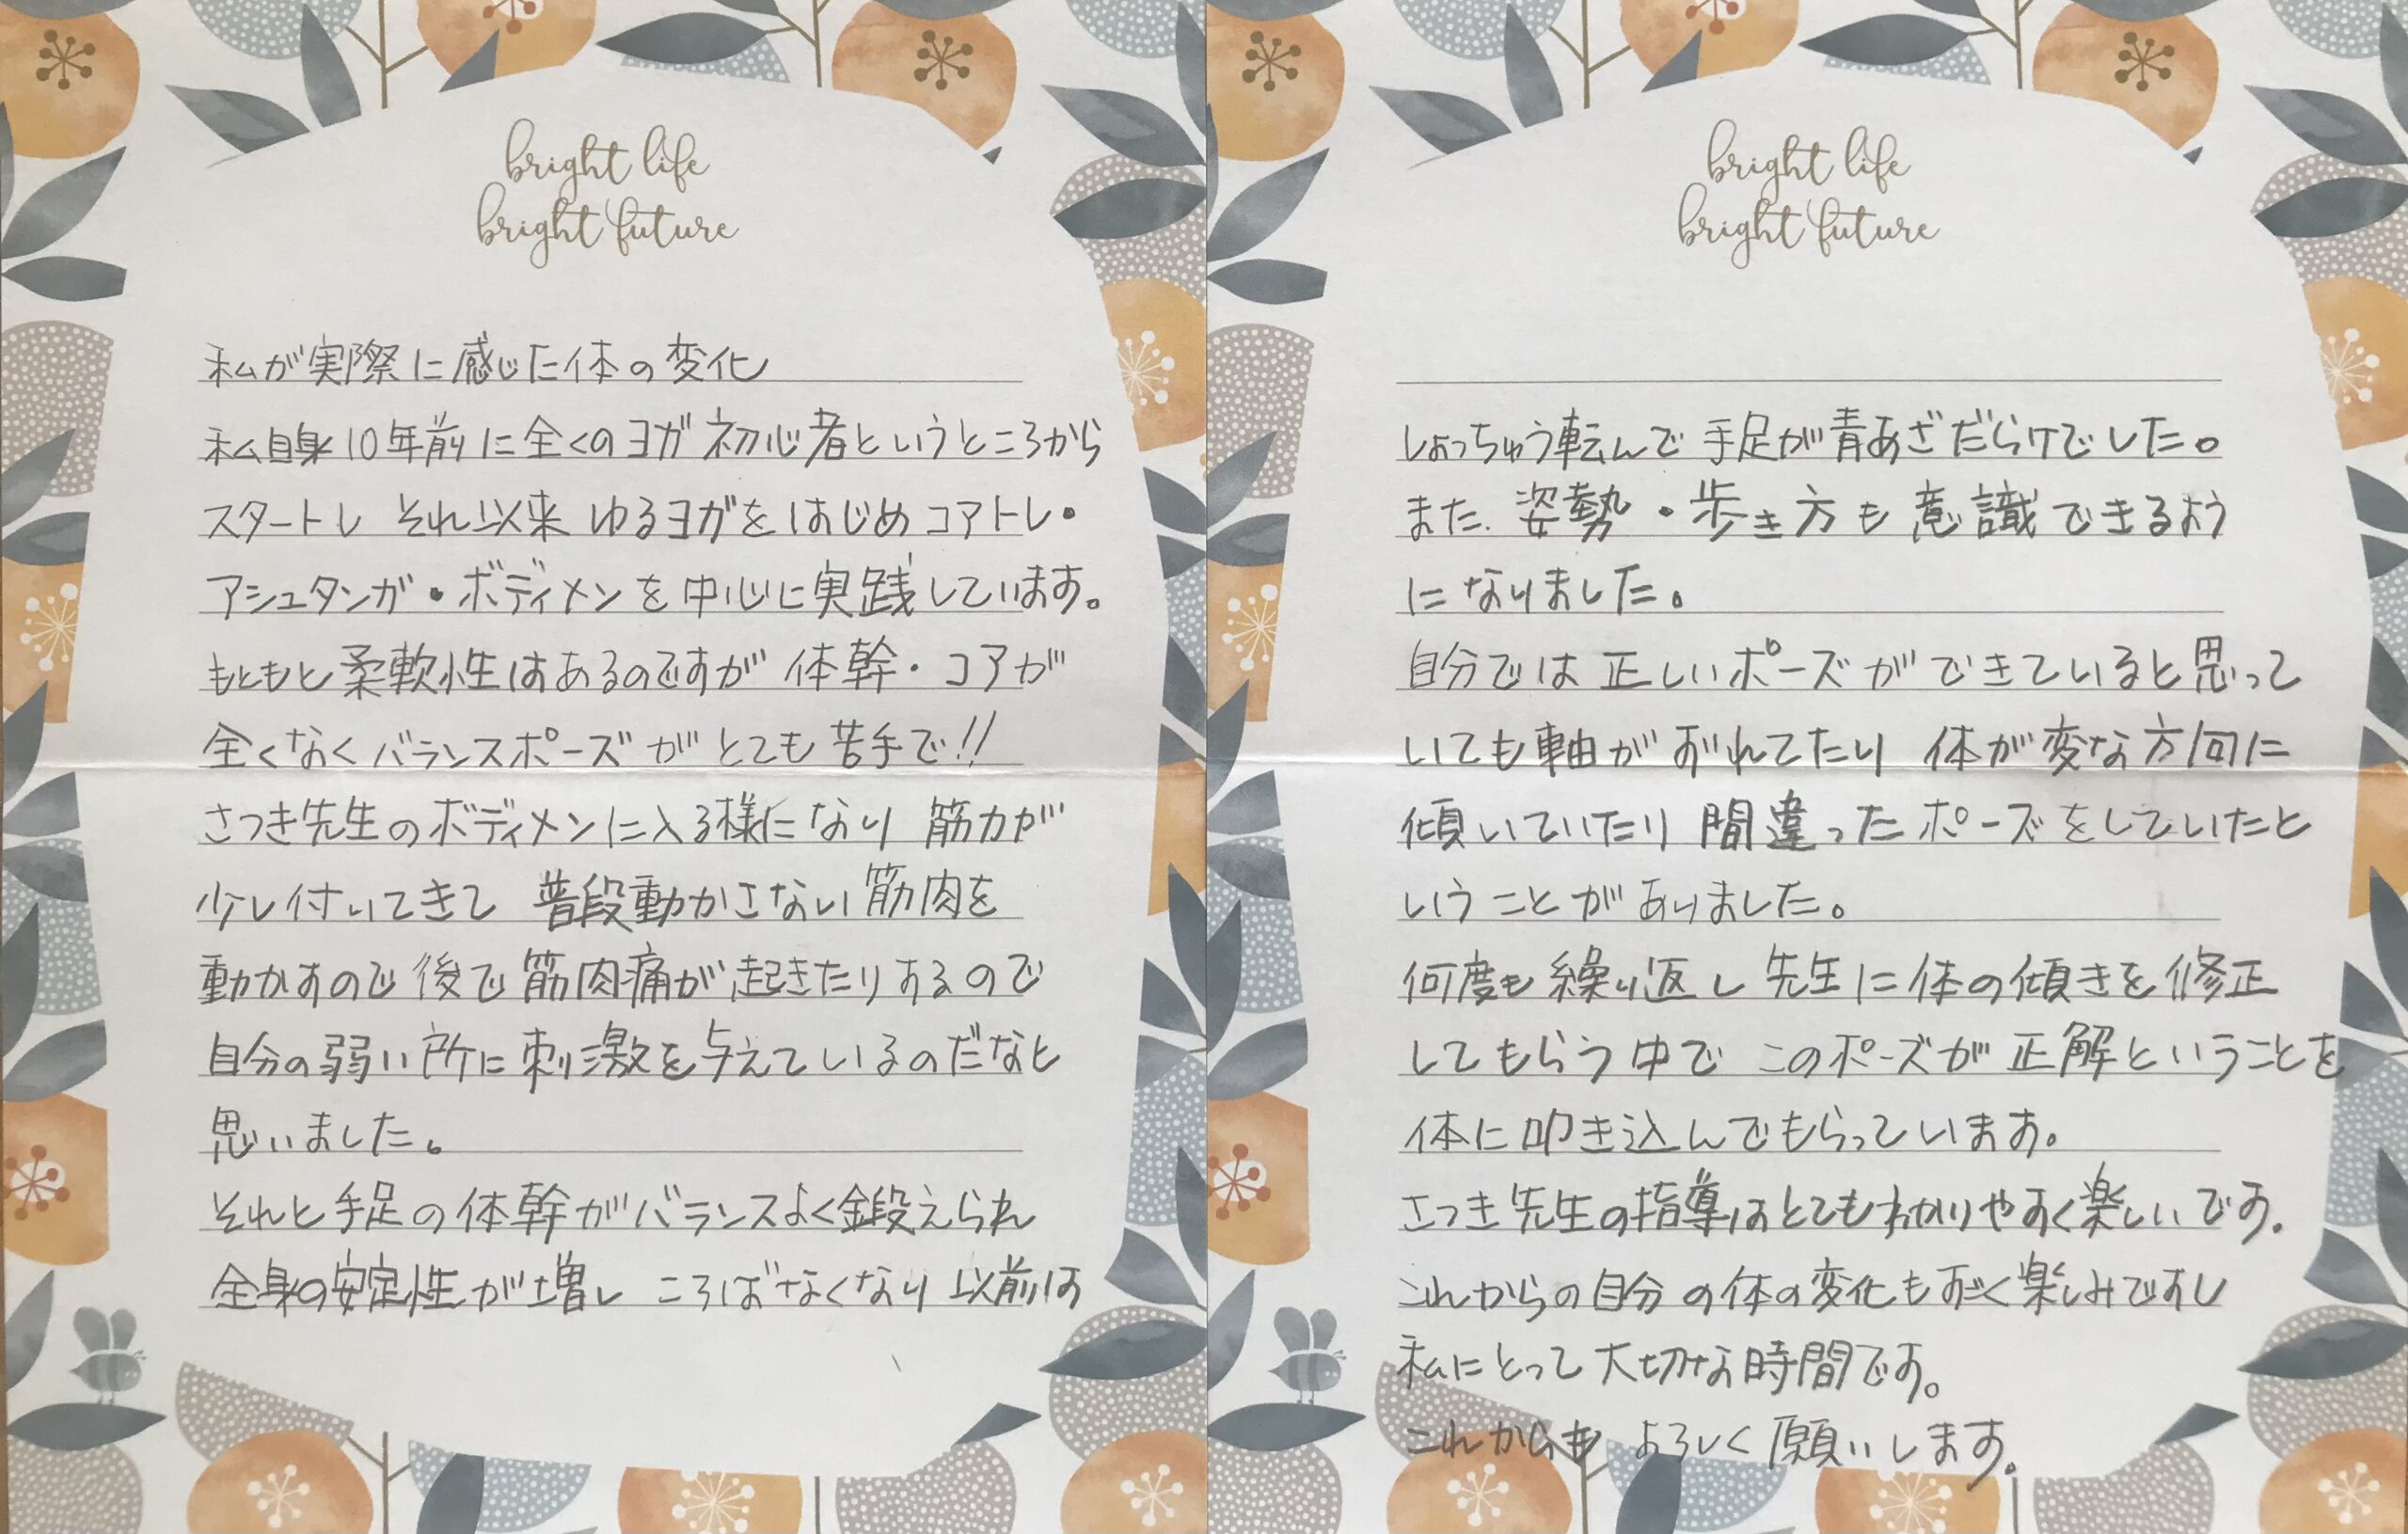 bright life
bright future
私が実際に感じた体の変化
私自身10年前に全くのヨガ初心者というところから
スタートし それ以来 ゆるヨガをはじめコアトレ・
アシュタンガ・ボディメンを中心に実践しています。
もともと柔軟性はあるのですが 体幹・コアが
全くなくバランスポーズがとても苦手で!!
さつき先生のボディメンに入る様になり 筋力が
少し付いてきて 普段動かさない筋肉を
動かすので後で筋肉痛が起きたりするので
自分の弱い所に刺激を与えているのだなと
思いました。
それと手足の体幹がバランスよく鍛えられ
全身の安定性が増し ころばなくなり 以前は
bright life
bright future
しょっちゅう転んで 手足が青あざだらけでした。
また、姿勢・歩き方も意識できるよう
になりました。
自分では正しいポーズができていると思って
いても軸がずれてたり 体が変な方向に
傾いていたり 間違ったポーズをしていたと
いうことがありました。
何度も繰り返し 先生に体の傾きを修正
してもらう中で このポーズが正解ということを
体に叩き込んでもらっています。
さつき先生の指導はとてもわかりやすく楽しいです。
これからの自分の体の変化もすごく楽しみですし
私にとって大切な時間です。
これからも よろしく願いします。